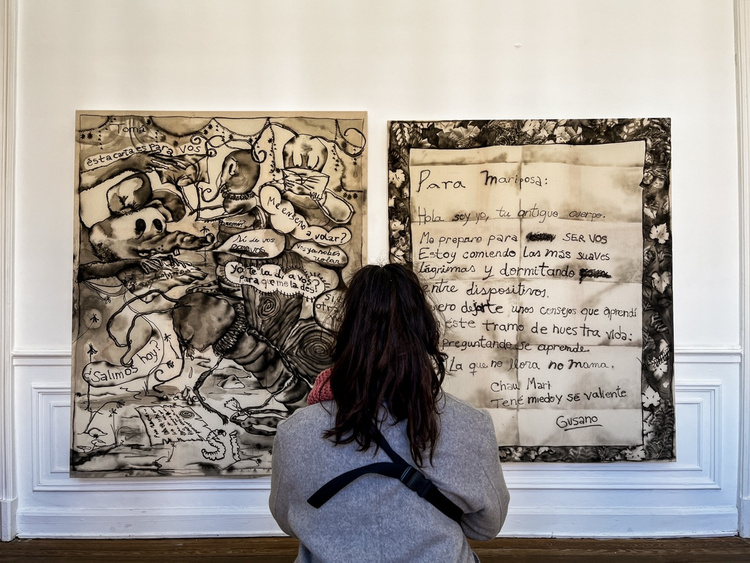 Toma
esta carta es para vos
Me enseño a volar?
Si de vos
yo te la di a vos?
para que me la des
Salimos hoy!
Para Mariposa:
Hola soy yo, tu antiguo cuerpo.
Me preparo para SER VOS
Estoy comiendo las mas suaves
lágrimas y dormitando
entre dispositivos.
ero dejarte unos consejos que aprendi
este tramo de nuestra vida:
preguntando se aprende
La que no llora no mama.
Chau Mari
Tené miedo y sé valiente
Gusano